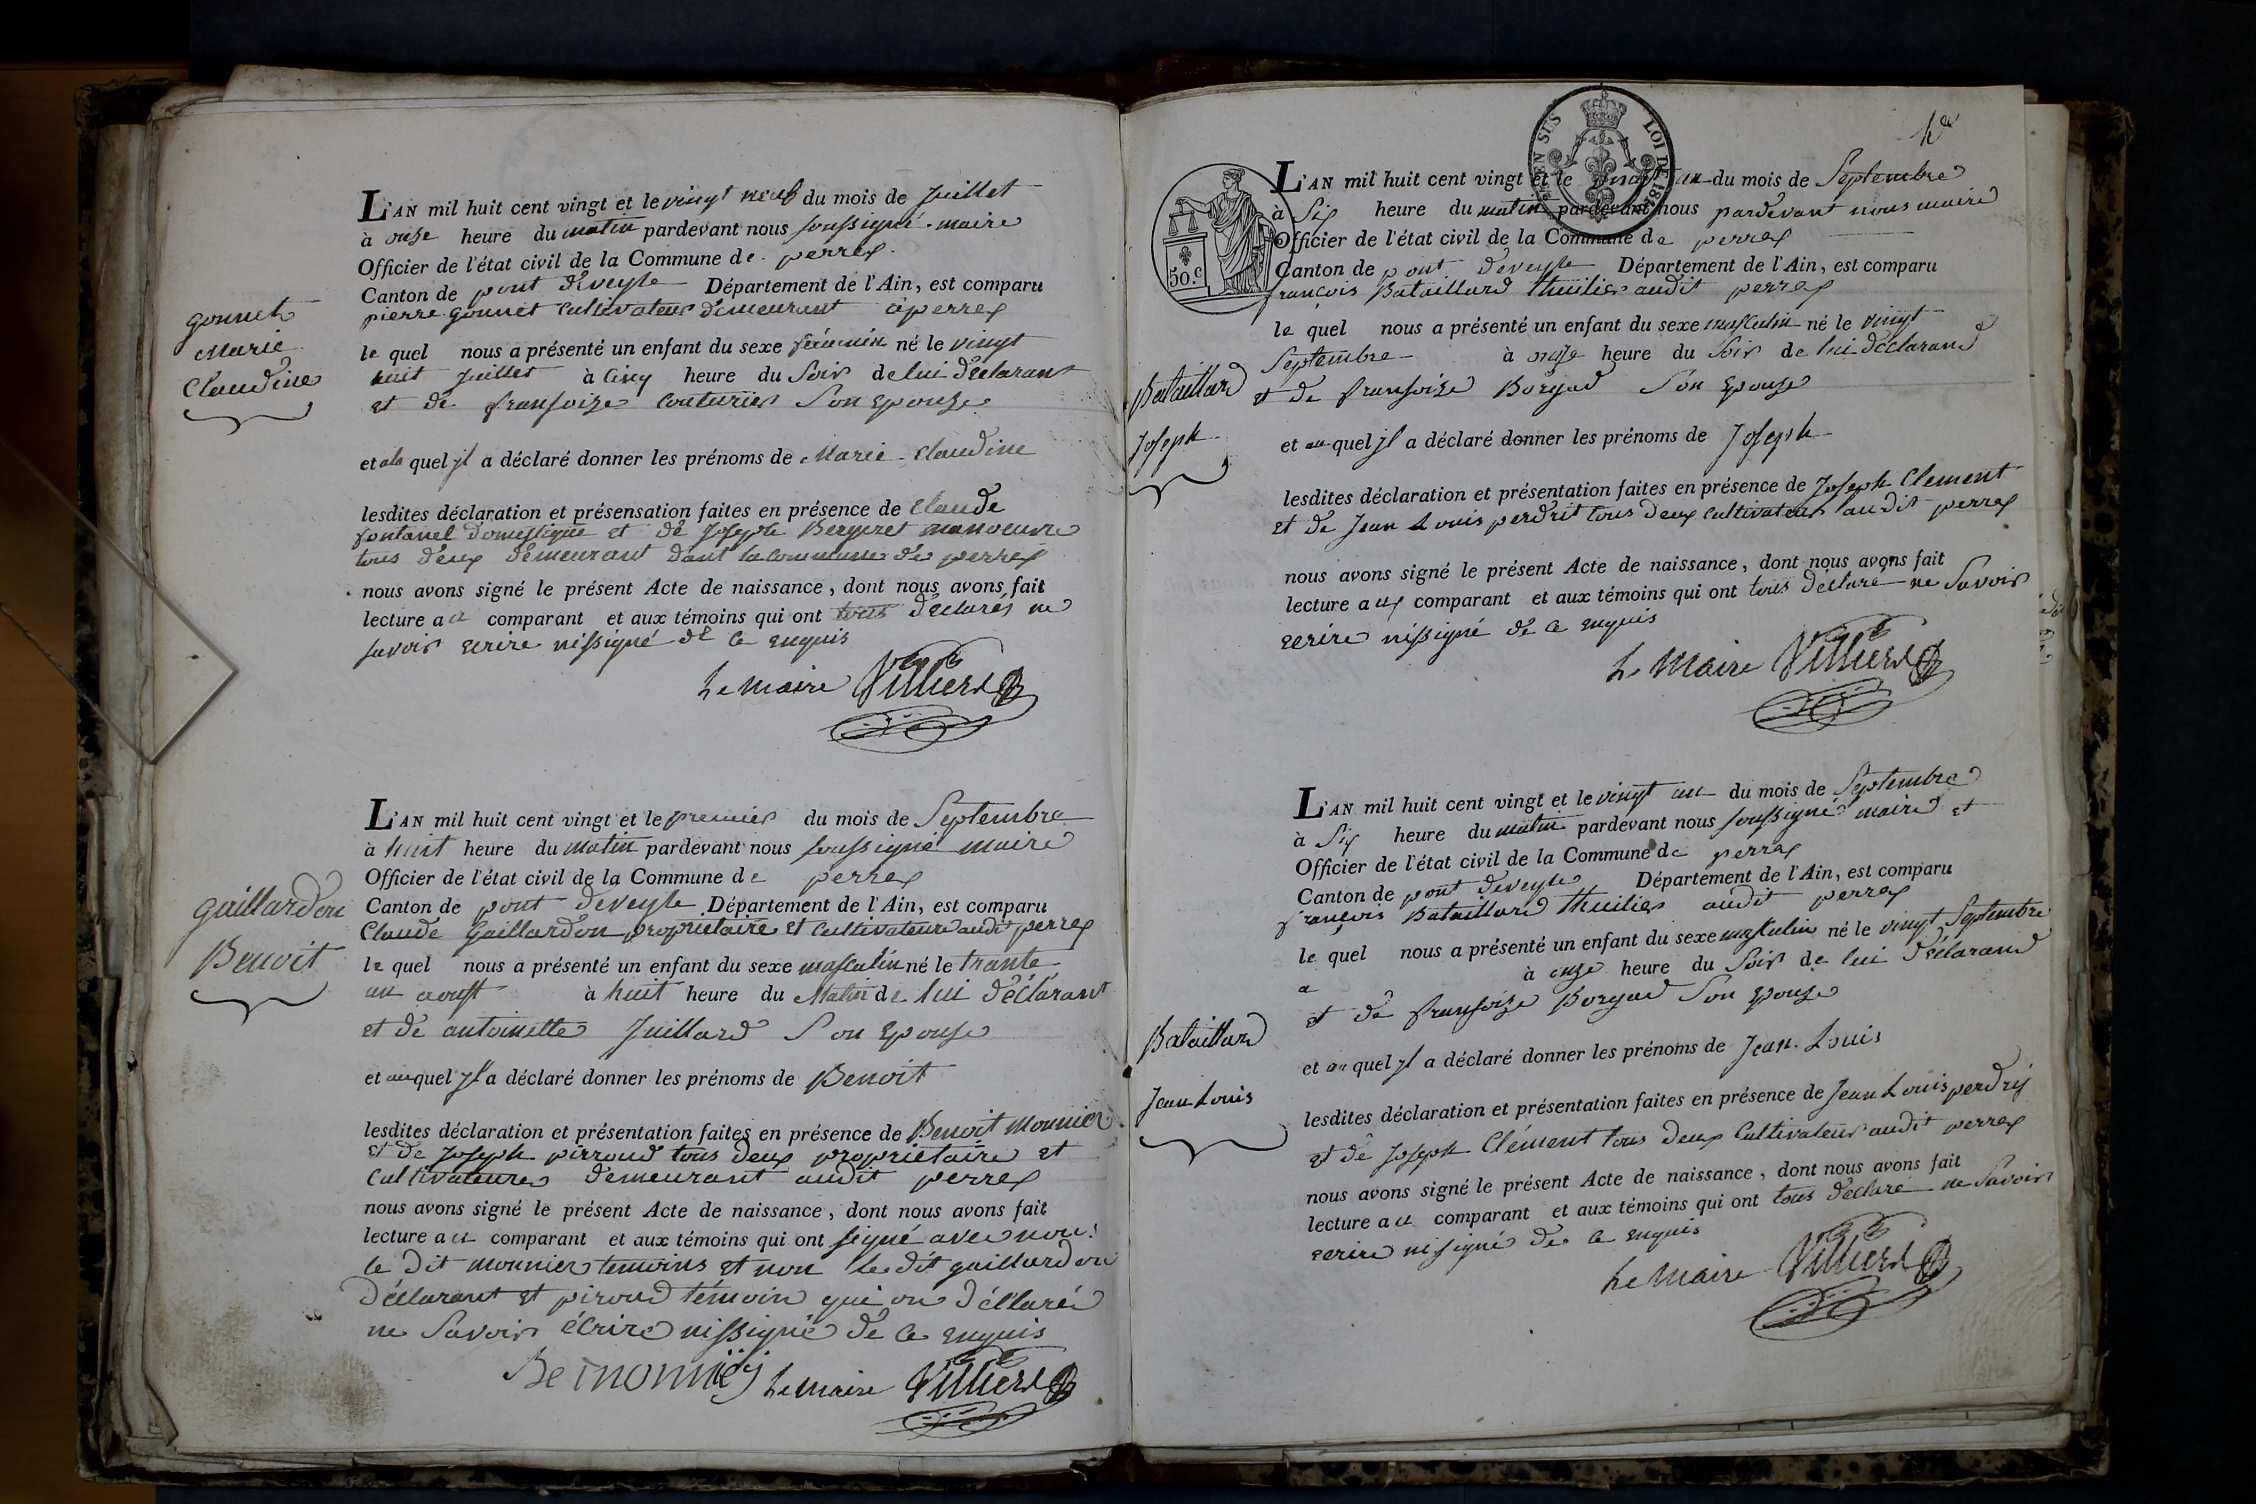 gonnet
Marie
Claudine
L'AN mil huit cent vingt et le vingt neuf du mois de Juillet
à onze heure du matin pardevant nous soussigné maire
Officier de l'état civil de la Commune de perrex
Canton de pont deveyle Département de l'Ain, est comparu
pierre gonnet Cultivateur demeurant à perrex
le quel nous a présenté un enfant du sexe féminin né le vingt
huit Juillet à Cinq heure du Soir de lui déclarant
et de fransoize couturier Son Epouze
et ala quel yl a déclaré donner les prénoms de Marie Claudine
lesdites déclaration et présensation faites en présence de Claude
fontanel domestique et de Joseph Bergeret manoeuvre
tous deux demeurant dant la commune de perrex
nous avons signé le présent Acte de naissance, dont nous avons fait
lecture au comparant et aux témoins qui ont tous déclarés ne
savoir ecrire nissigné de ce enquis
Le maire Villierd
gaillardon
Benoit
L'AN mil huit cent vingt et le premier du mois de Septembre
à huit heure du matin pardevant nous soussigné maire
Officier de l'état civil de la Commune de perrex
Canton de pont deveyle Département de l'Ain, est comparu
Claude Gaillardon proprietaire et Cultivateur audit perrex
le quel nous a présenté un enfant du sexe masculin né le trante
un aoust à huit heure du Matin de lui déclarant
et de antoinette Juillard Son Epouse
et auquel yl a déclaré donner les prénoms de Benoit
lesdites déclaration et présentation faites en présence de Benoit Monnier
et de Joseph pirroud tous deux proprietaire et
Cultivateure demeurant audit perrex
nous avons signé le présent Acte de naissance, dont nous avons fait
lecture au comparant et aux témoins qui ont signé avec nous
le dit monnier temoins et non le dit gaillardon
déclarant et piroud témoin qui on déclaré
ne Savoir écrire nissigné de ce enquis
Be monnier Le maire Villierd
Bataillard
Joseph
L'AN mil huit cent vingt et le vingt un du mois de Septembre
à Six heure du matin pardevant nous pardevant nous maire
Officier de l'état civil de la Commune de perrex
Canton de pont deveyle Département de l'Ain, est comparu
50.c
françois Bataillard thuilier audit perrex
le quel nous a présenté un enfant du sexe masculin né le vingt
Septembre à onze heure du Soir de lui déclarand
et de fransoize Borjad Son Epouze
et au quel yl a déclaré donner les prénoms de Joseph
lesdites déclaration et présentation faites en présence de Joseph Clement
et de Jean Louis perdrit tous deux cultivateur audit perrex
nous avons signé le présent Acte de naissance, dont nous avons fait
lecture aux comparant et aux témoins qui ont tous déclaré ne Savoir
ecrire nissigné de ce enquis
Le Maire Villierd
Bataillard
Jean Louis
L'AN mil huit cent vingt et le vingt un du mois de Septembre
à Six heure du matin pardevant nous soussigné maire et
Officier de l'état civil de la Commune de perrex
Canton de pont deveyle Département de l'Ain, est comparu
françois Bataillard thuilier audit perrex
le quel nous a présenté un enfant du sexe masculin né le vingt Septembre
à onze heure du Soir de lui déclarand
et de fransoize Borjad Son Epouze
et au quel yl a déclaré donner les prénoms de Jean Louis
lesdites déclaration et présentation faites en présence de Jean Louis perdrij
et de Joseph Clément tous deux Cultivateur audit perrex
nous avons signé le présent Acte de naissance, dont nous avons fait
lecture au comparant et aux témoins qui ont tous déclaré ne Savoir
ecrire nisigné de ce enquis
Le Maire Villierd